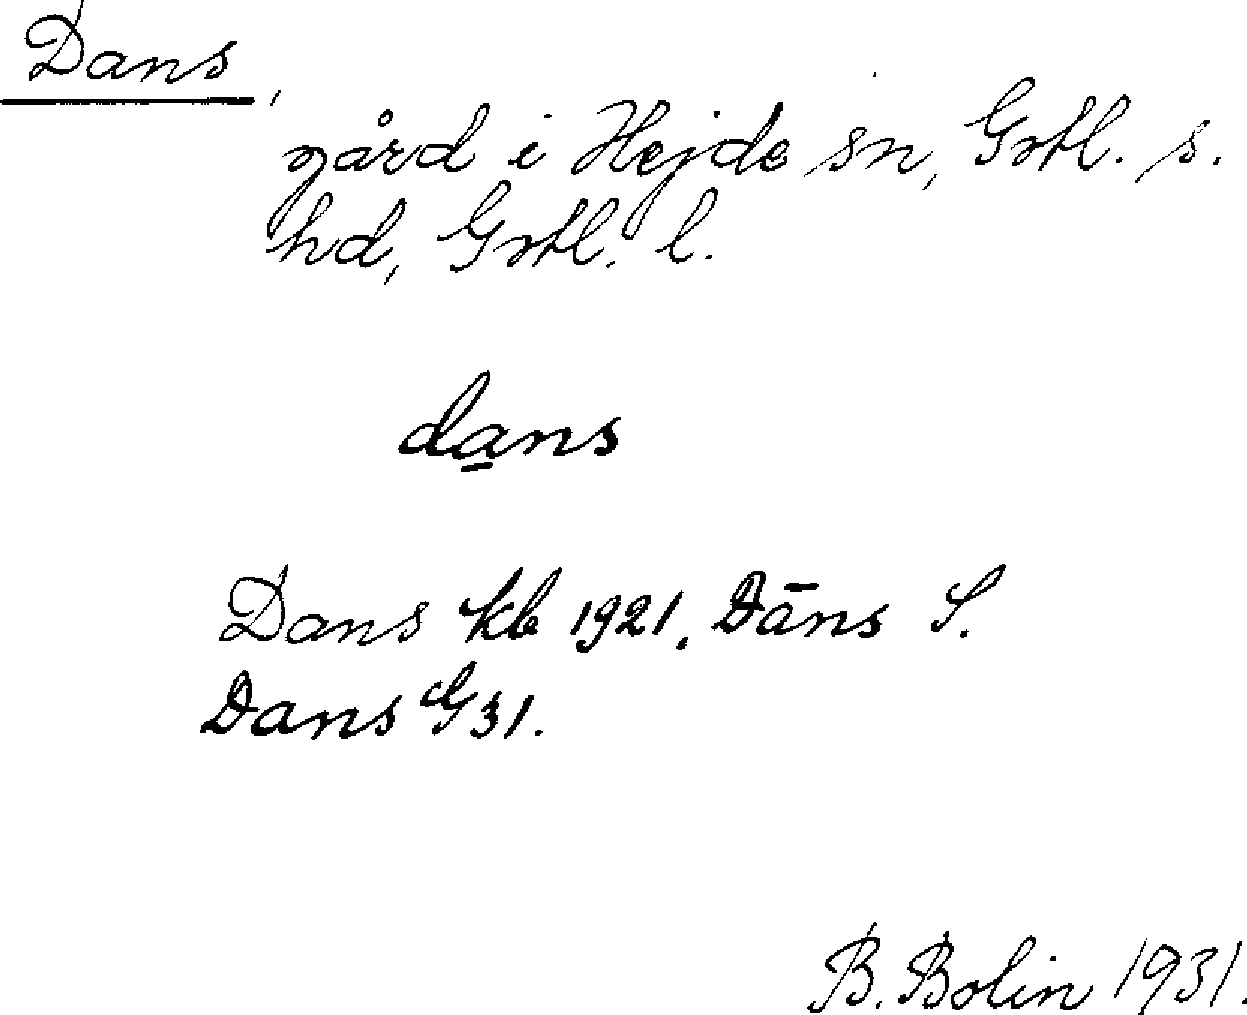 Dans,
gård i Hejde sn, Gotl. s.
hd, Gotl. l.
dans
Dans kb 1921. Dāns S.
Dans G31.
B. Bolin 1931.